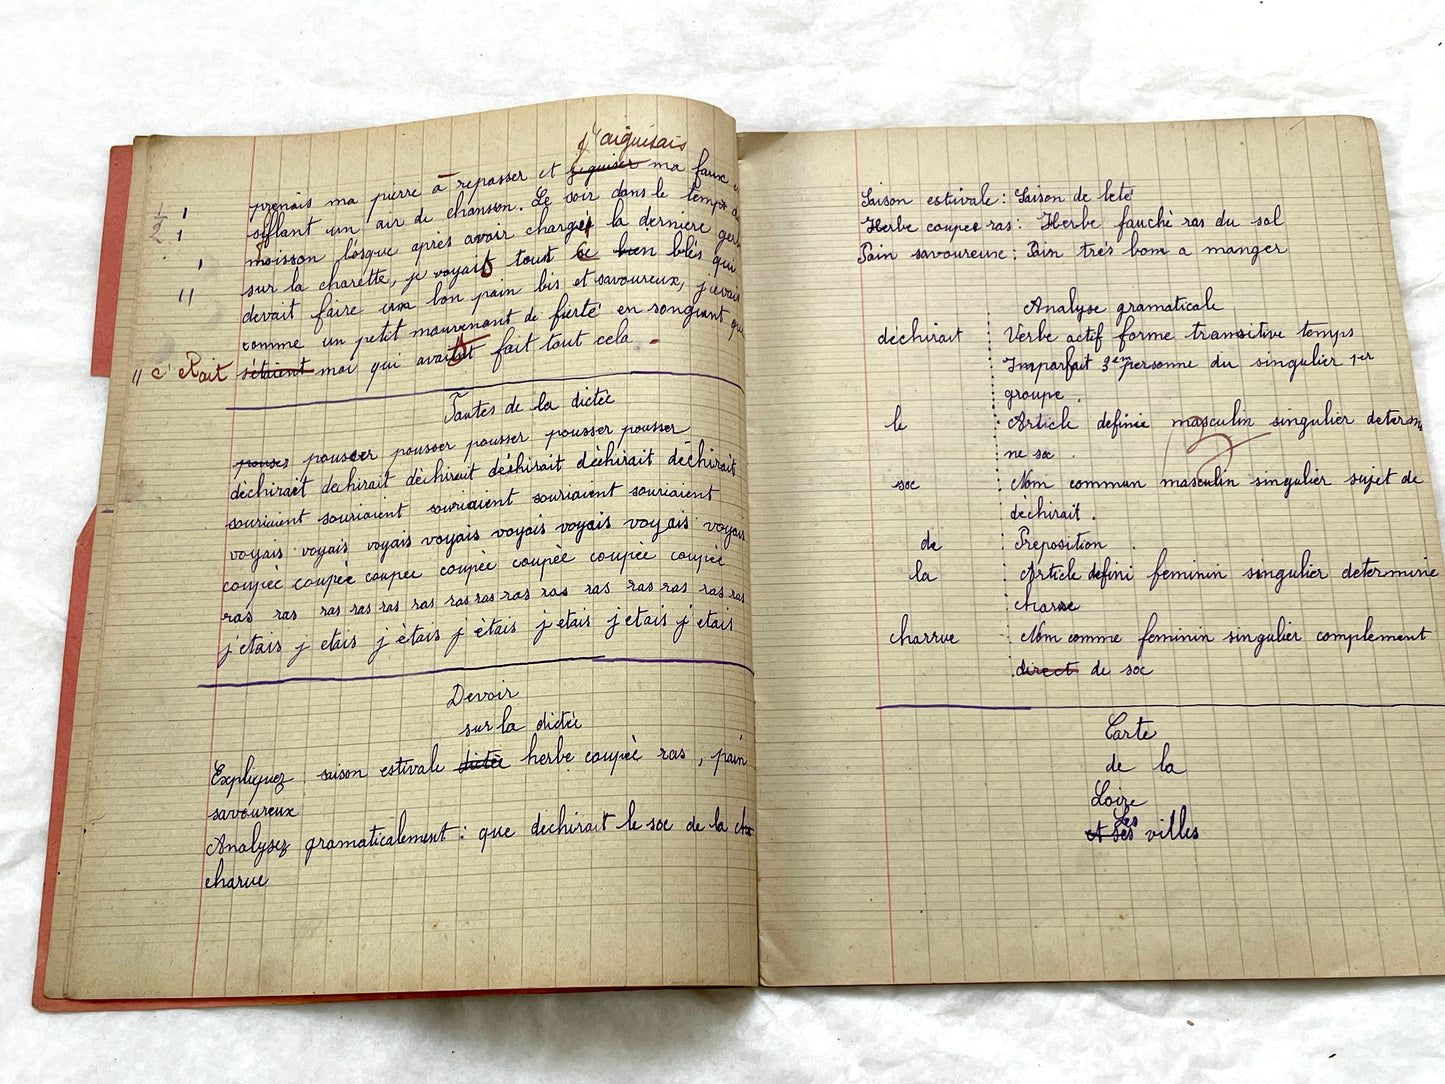 j'aiguisais
prenais ma pierre à repasser et ma faux
1/2 1 sifflant un air de chanson. Le soir dans le temps
1 moisson losque après avoir chargé la derniere gerbe
1 sur la charette, je voyais tout ce bien blés qui
11 devait faire un bon pain bis et savoureux, j'avais
comme un petit mouvement de fierté en songeant que
11 c'etait s'étaient moi qui avait fait tout cela.
Fautes de la dictée
pousez pousser pousser pousser pousser pousser
déchirait dechirait déchirait déchirait déchirait déchirait
souriaient souriaient souriaient souriaient souriaient
voyais voyais voyais voyais voyais voyais voyais
coupée coupée coupee coupée coupée coupée coupée
ras ras ras ras ras ras ras ras ras ras ras ras ras ras
j'etais j etais j ètais j étais j etais j etais j etais
Devoir
sur la dictée
Expliquez saison estivale dictée herbe coupée ras, pain
savoureux
Analysez gramaticalement : que dechirait le soc de la cha
charue
Saison estivale : Saison de lété
Herbe coupee ras : Herbe fauché ras du sol
Pain savoureuse : Pain très bom a manger
Analyse gramaticale
dechirait : Verbe actif forme transitive temps
Imparfait 3em personne du singulier 1er
groupe.
le : Article definie masculin singulier determi
ne soc.
soc : Nom commun masculin singulier sujet de
déchirait.
de : Preposition.
la : Article defini feminin singulier determine
charue
charrue : Nom comme feminin singulier complement
direct de soc
Carte
de la
Loire
Les
et Ses villes